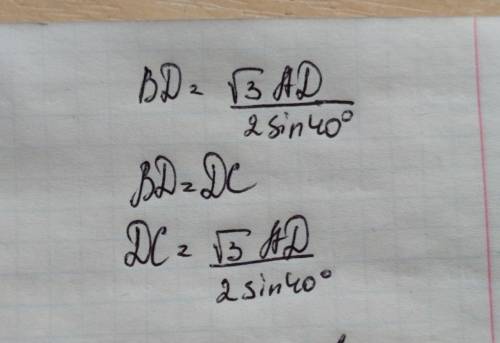 BD = √3 AD / 2 sin 40°
BD = DC
DC = √3 AD / 2 sin 40°